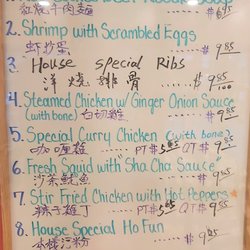 紅燒牛肉麵 ..... $6.95
2. Shrimp with Scrambled Eggs
虾炒蛋 ..... $9.85
3. House special Ribs
洋燒排骨 ..... $
4. Steamed Chicken w/ Ginger Onion Sauce
(with bone) 白切雞 ..... $9.85
5. Special Curry Chicken (with bone)
咖喱雞 ..... PT $5.85 QT $9.
6. Fresh Squid with "Sha Cha Sauce"
沙茶鮮魷 ..... $9.85
7. Stir Fried Chicken with Hot Peppers
辣子雞丁 ..... PT $5.85 QT $9.85
8. House Special Ho Fun
本樓河粉 ..... $9.85